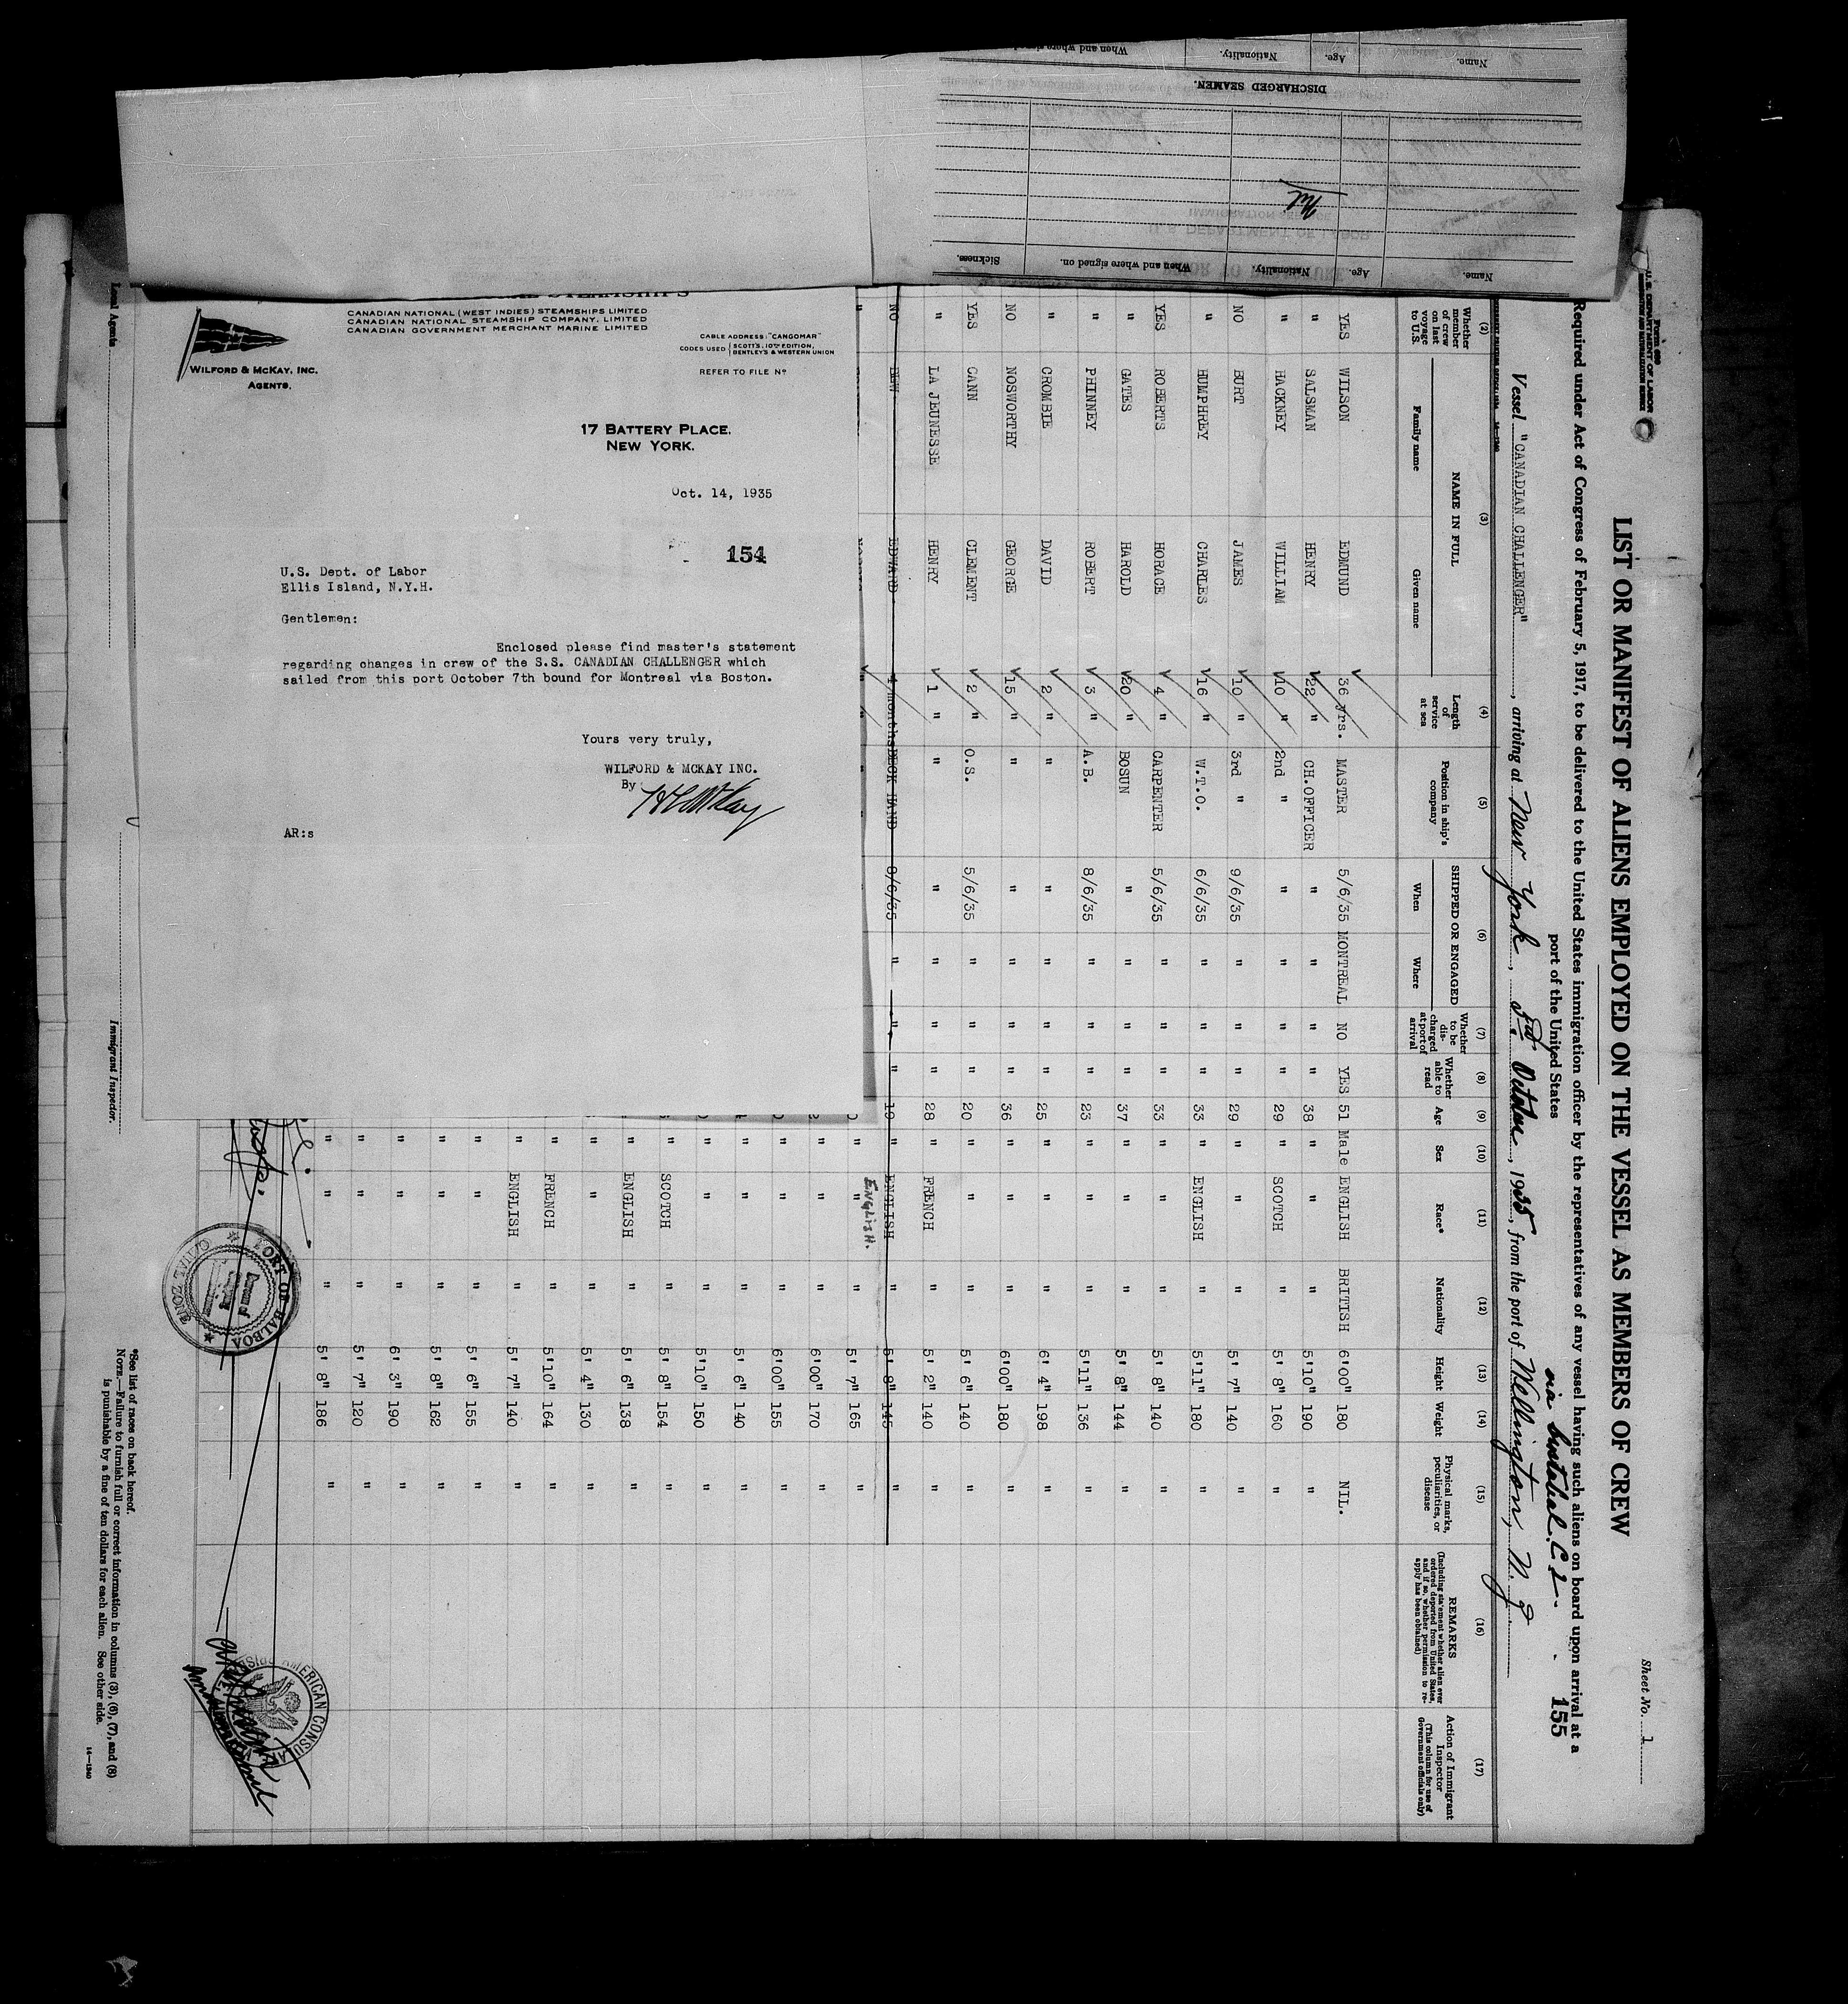 Name. Age. Nationality. When and where
DISCHARGED SEAMEN.
Nil
Name. Age. Nationality. When and where signed on. Sickness.
CANADIAN NATIONAL (WEST INDIES) STEAMSHIPS LIMITED
CANADIAN NATIONAL STEAMSHIP COMPANY, LIMITED
CANADIAN GOVERNMENT MERCHANT MARINE LIMITED
CABLE ADDRESS: "CANGOMAR"
CODES USED SCOTT'S, 10TH EDITION,
BENTLEY'S & WESTERN UNION
WILFORD & MCKAY, INC.
AGENTS.
REFER TO FILE No
17 BATTERY PLACE.
NEW YORK.
Oct. 14, 1935
154
U.S. Dept. of Labor
Ellis Island, N.Y.H.
Gentlemen:
Enclosed please find master's statement
regarding changes in crew of the S.S. CANADIAN CHALLENGER which
sailed from this port October 7th bound for Montreal via Boston.
Yours very truly,
WILFORD & MCKAY INC.
By
AR:s
U.S. DEPARTMENT OF LABOR
Sheet No. 1
LIST OR MANIFEST OF ALIENS EMPLOYED ON THE VESSEL AS MEMBERS OF CREW
Required under Act of Congress of February 5, 1917, to be delivered to the United States immigration officer by the representatives of any vessel having such aliens on board upon arrival at a
port of the United States
155
Vessel "CANADIAN CHALLENGER", arriving at New York, 3rd October, 1935, from the port of Wellington, N.
(2) (3) (4) (5) (6) (7) (8) (9) (10) (11) (12) (13) (14) (15) (16) (17)
Whether member of crew on last voyage to U.S. NAME IN FULL Family name Given name Length of service at sea Position in ship's company SHIPPED OR ENGAGED When Where Whether to be discharged at port of arrival Whether able to read Age Sex Race* Nationality Height Weight Physical marks, peculiarities, or disease REMARKS (Including statement whether alien ever ordered deported from United States, and if so, whether permission to reapply has been obtained) Action of Immigrant Inspector (This column for use of Government officials only)
YES WILSON EDMUND 36 yrs. MASTER 5/6/35 MONTREAL NO YES 51 Male ENGLISH BRITISH 6'00" 180 NIL.
" SALSMAN HENRY 22 " CH.OFFICER " " " " 38 " " " 5'10" 190 "
" HACKNEY WILLIAM 10 " 2nd " " " " " 29 " SCOTCH " 5' 8" 160 "
NO BURT JAMES 10 " 3rd " 9/6/35 " " " 29 " " " 5' 7" 140 "
" HUMPHREY CHARLES 16 " W.T.O. 6/6/35 " " " 33 " ENGLISH " 5'11" 180 "
YES ROBERTS HORACE 4 " CARPENTER 5/6/35 " " " 33 " " " 5' 8" 140 "
" GATES HAROLD 20 " BOSUN " " " " 37 " " " 5' 8" 144 "
" PHINNEY ROBERT 3 " A.B. 8/6/35 " " " 23 " " " 5'11" 136 "
" CROMBIE DAVID 2 " " " " " " 25 " " " 6' 4" 198 "
NO NOSWORTHY GEORGE 15 " " " " " " 36 " " " 6'00" 180 "
YES CANN CLEMENT 2 " O.S. 5/6/35 " " " 20 " " " 5' 6" 140 "
" LA JEUNESSE HENRY 1 " " " " " " 28 " FRENCH " 5' 2" 140 "
NO DEW EDWARD 4 months DECK HAND 8/6/35 " " " 19 " ENGLISH " 5' 8" 145 "
" ENGLISH. " 5' 7" 165 "
" " " 6'00" 170 "
" " " 6'00" 155 "
" " " 5' 6" 140 "
" " " 5'10" 150 "
" SCOTCH " 5' 8" 154 "
" ENGLISH " 5' 6" 138 "
" " " 5' 4" 130 "
" FRENCH " 5'10" 164 "
" ENGLISH " 5' 7" 140 "
" " " 5' 6" 155 "
" " " 5' 8" 162 "
" " " 6' 3" 190 "
" " " 5' 7" 120 "
" " " 5' 8" 186 "
PORT OF BALBOA
CANAL ZONE
AMERICAN CONSULATE
Local Agents
Immigrant Inspector.
*See list of races on back hereof.
NOTE.—Failure to furnish full or correct information in columns (3), (6), (7), and (8)
is punishable by a fine of ten dollars for each alien. See other side.
14—1240